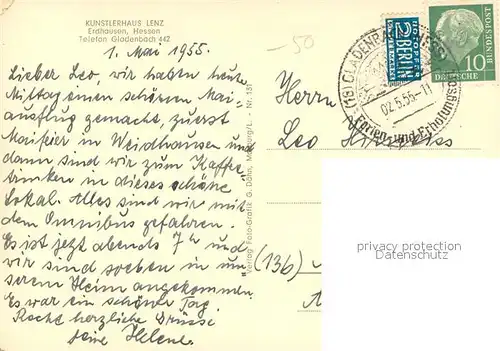 KÜNSTLERHAUS LENZ
Erdhausen, Hessen
Telefon Gladenbach 442
1. Mai 1955.
Lieber Leo, wir haben heute
Mittag einen schönen Mai-
ausflug gemacht, zuerst
Maifeier in Weidhausen und
dann sind wir zum Kaffee
trinken in dieses schöne
Lokal. Alles sind wir mit
dem Omnibus gefahren.
Es ist jetzt abends 7 h und
wir sind soeben in un
serem Heim angekommen.
Es war ein schöner Tag
Recht herzliche Grüsse
Deine Helene.
Verlag Foto-Grafik G. Döhn, Marburg/L. - Nr. 181
-50
NOTOPFER
2 BERLIN
STEUERMARKE
DEUTSCHE
BUNDESPOST
10
(16) GLADENBACH
02.5.55-11
Ferien- und Erholungsort
Herrn
Leo
(13b)
privacy protection
Datenschutz